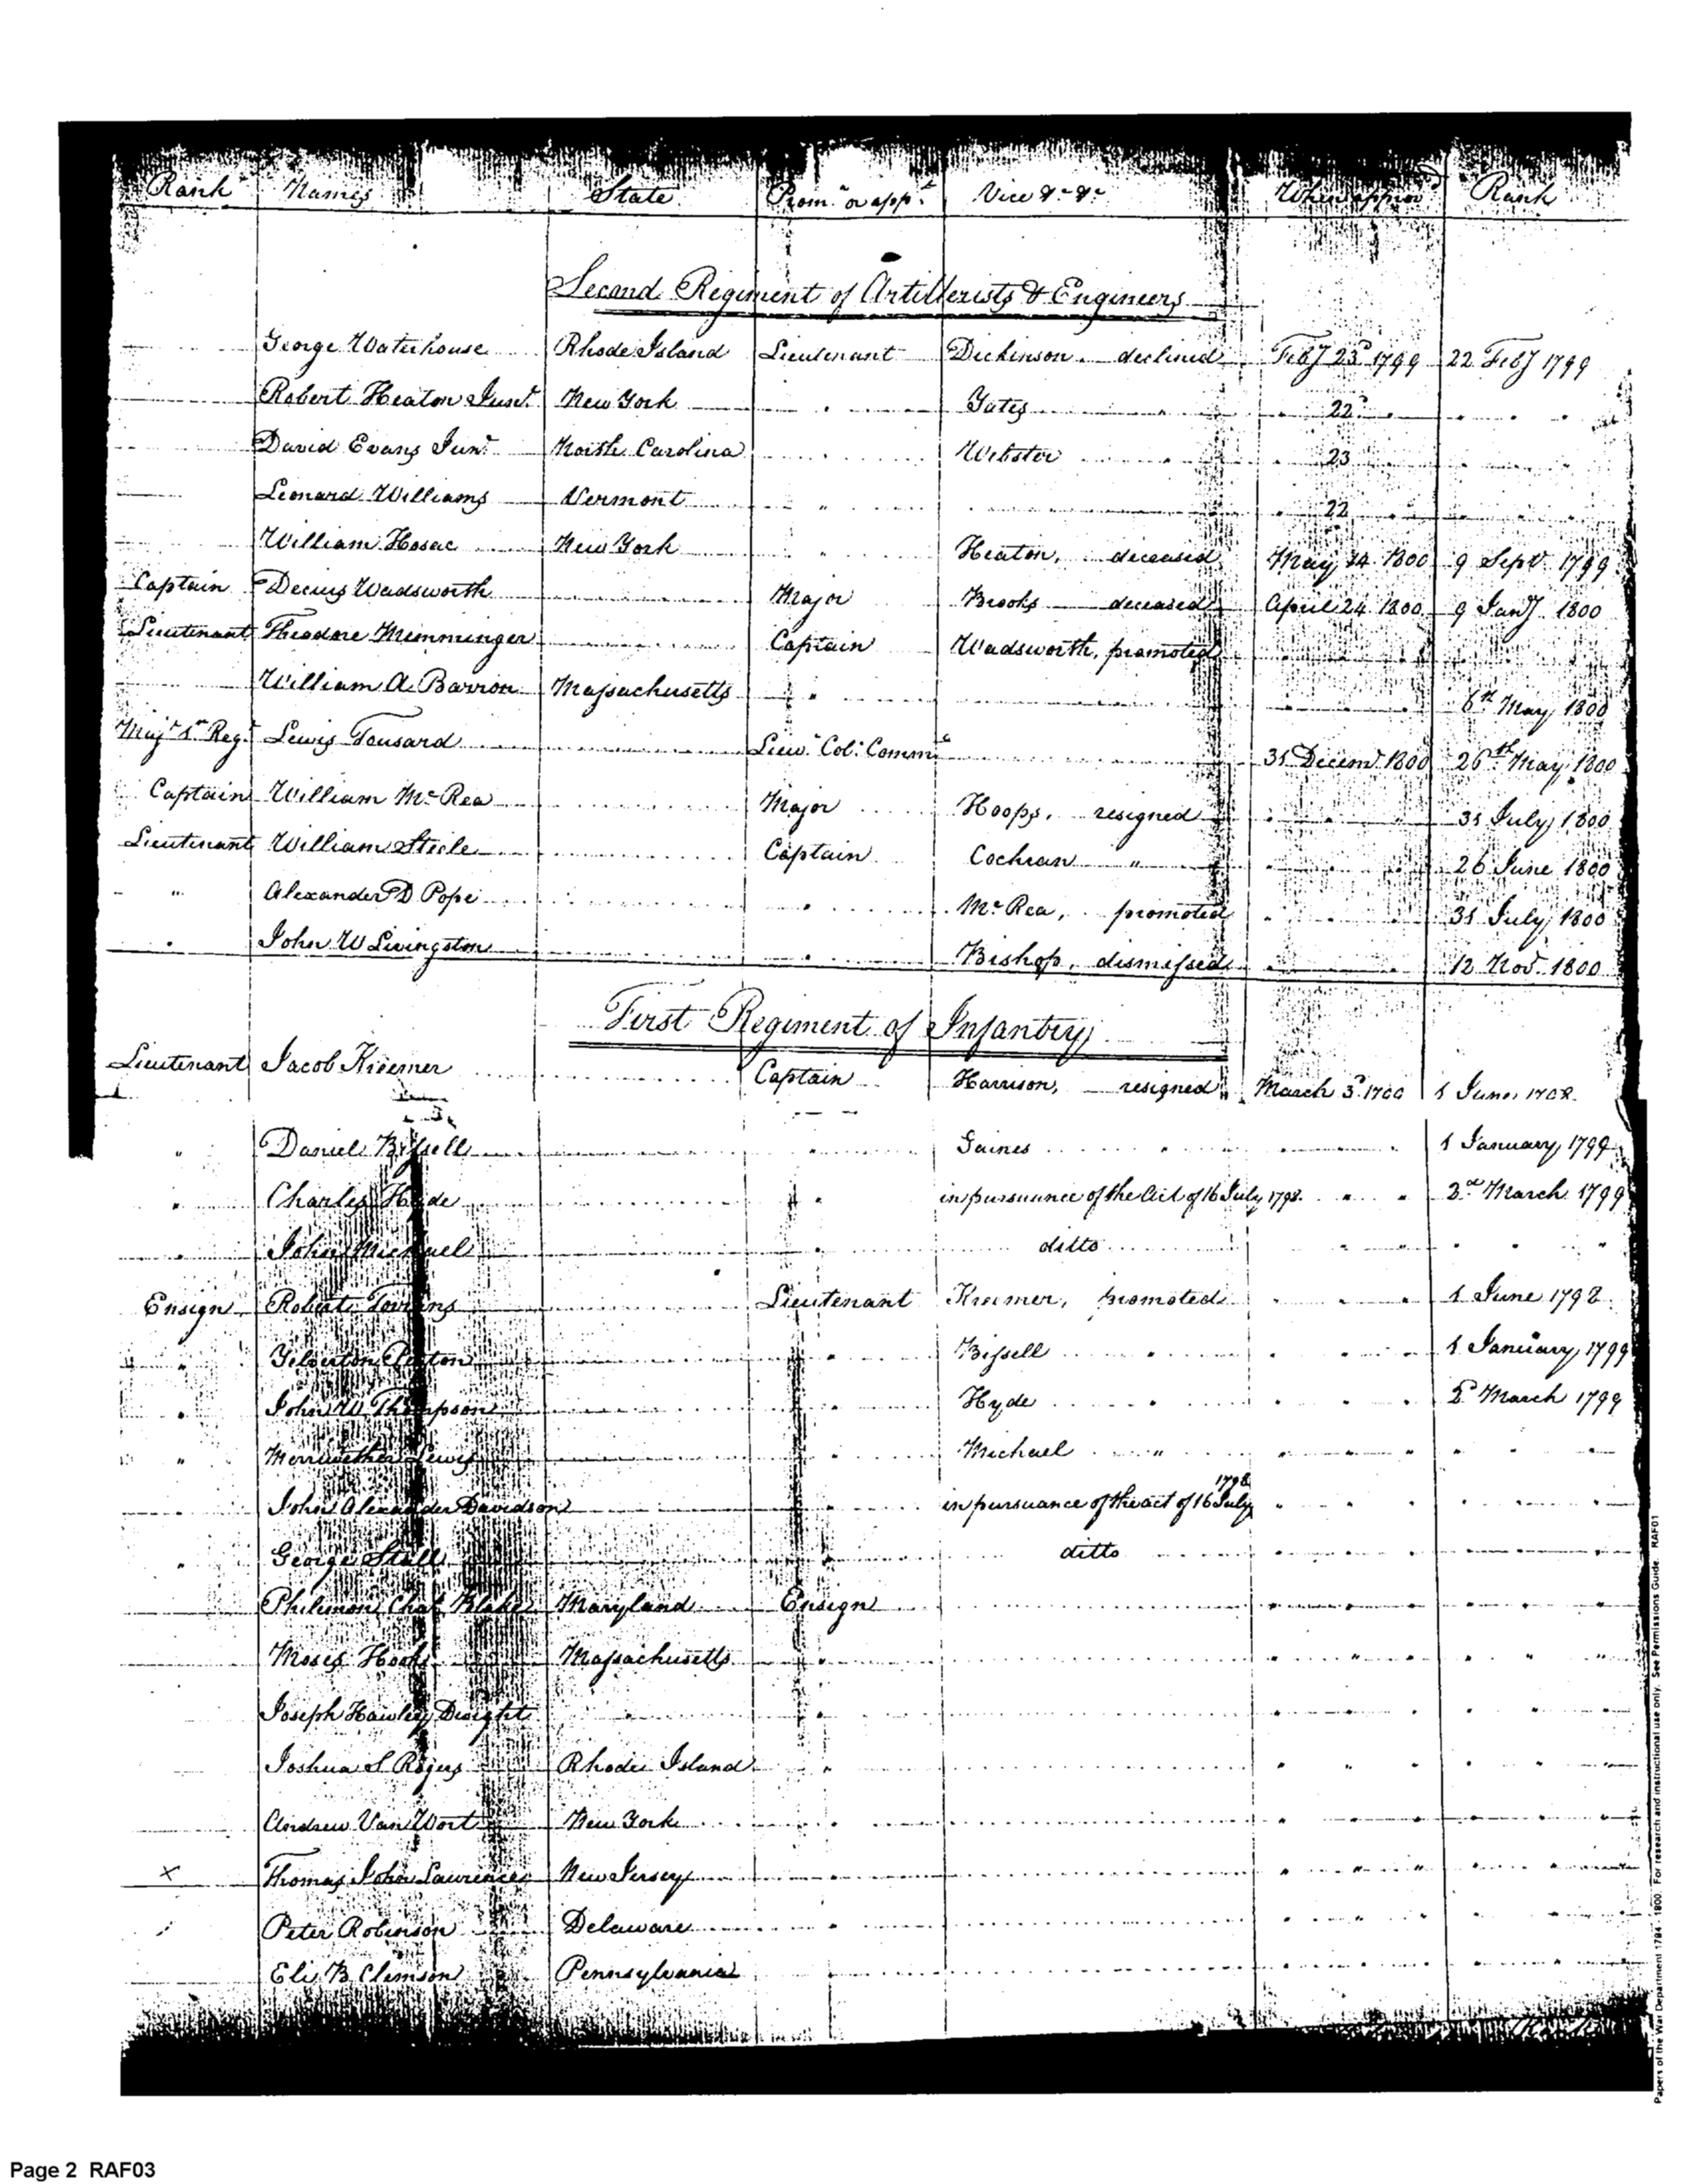 Rank Names State Prom.n or app.t Vice &c &c When appro.d Rank
Second Regiment of Artillerists & Engineers
George Waterhouse Rhode Island Lieutenant Dickinson. declined Feby 23d 1799 22 Feby 1799
Robert Heaton Junr. New York " Yates " 22d " " " "
David Evans Junr. North Carolina Webster " 23
Leonard Williams Vermont " " 22
William Hosac New York " Heaton, deceased May 14 1800 9 Sept. 1799
Captain Decius Wadsworth Major Brooks deceased April 24 1800 9 Jany 1800
Lieutenant Theodore Memminger Captain Wadsworth, promoted
William A. Barron Massachusetts " 6th May 1800
Majr 1st Reg.t Lewis Tousard Lieut Col: Comm 31 Decemr 1800 26th May 1800
Captain William McRea Major Hoops, resigned " " 31 July 1800
Lieutenant William Steele Captain Cochran " " " 26 June 1800
" " Alexander D Pope " McRea, promoted " " 31 July 1800
" John W Livingston " Bishop, dismissed " " 12 Nov. 1800
First Regiment of Infantry
Lieutenant Jacob Kreemer Captain Harrison, resigned March 3d 1 June
" Daniel Bissell " Gaines " " " 1 January 1799
" Charles Hyde " in pursuance of the Act of 16 July 1798. " " 3d March 1799
" John Michael " ditto " " " " " "
Ensign Robert Lieutenant Kreemer, promoted " " " 1 June 1798
" Yelverton Peyton " Bissell " " " " 1 January 1799
" John W. Thompson Hyde " " " " " 3d March 1799
" Merriwether Lewis " Michael " " " " " "
" John Alexander Davidson " in pursuance of the act of 16 July 1798 " " " " " "
" George Stall " ditto " " " " " "
Philemon Cha.s Blake Maryland Ensign " " " " " "
Moses Hook Massachusetts " " " " " " "
Joseph Hawley Dwight " " " " " " "
Joshua S Rogers Rhode Island " " " " " " "
Andrew Van Wort New York " " " " " " "
x Thomas John Lawrence New Jersey " " " " " "
Peter Robinson Delaware " " " " " " "
Eli B Clemson Pennsylvania " " " " " "
Papers of the War Department 1784 - 1800. For research and instructional use only. See Permissions Guide. RAF01
Page 2 RAF03